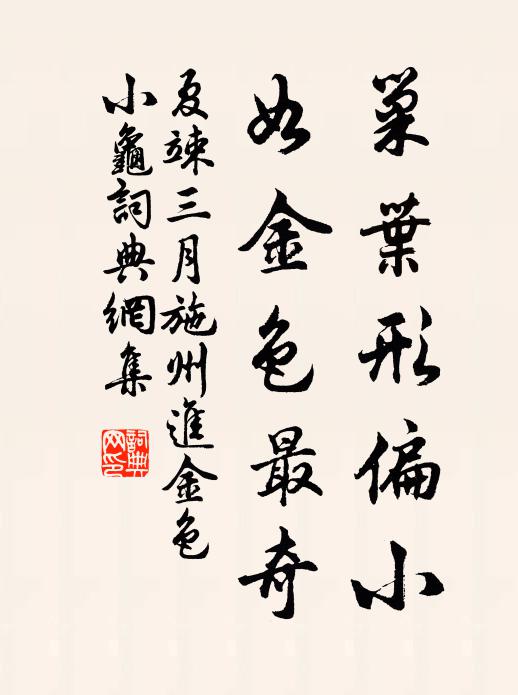 巢葉形偏小
如金色最奇
夏竦三月施州進金色
小龜詞典網集
詞典網印